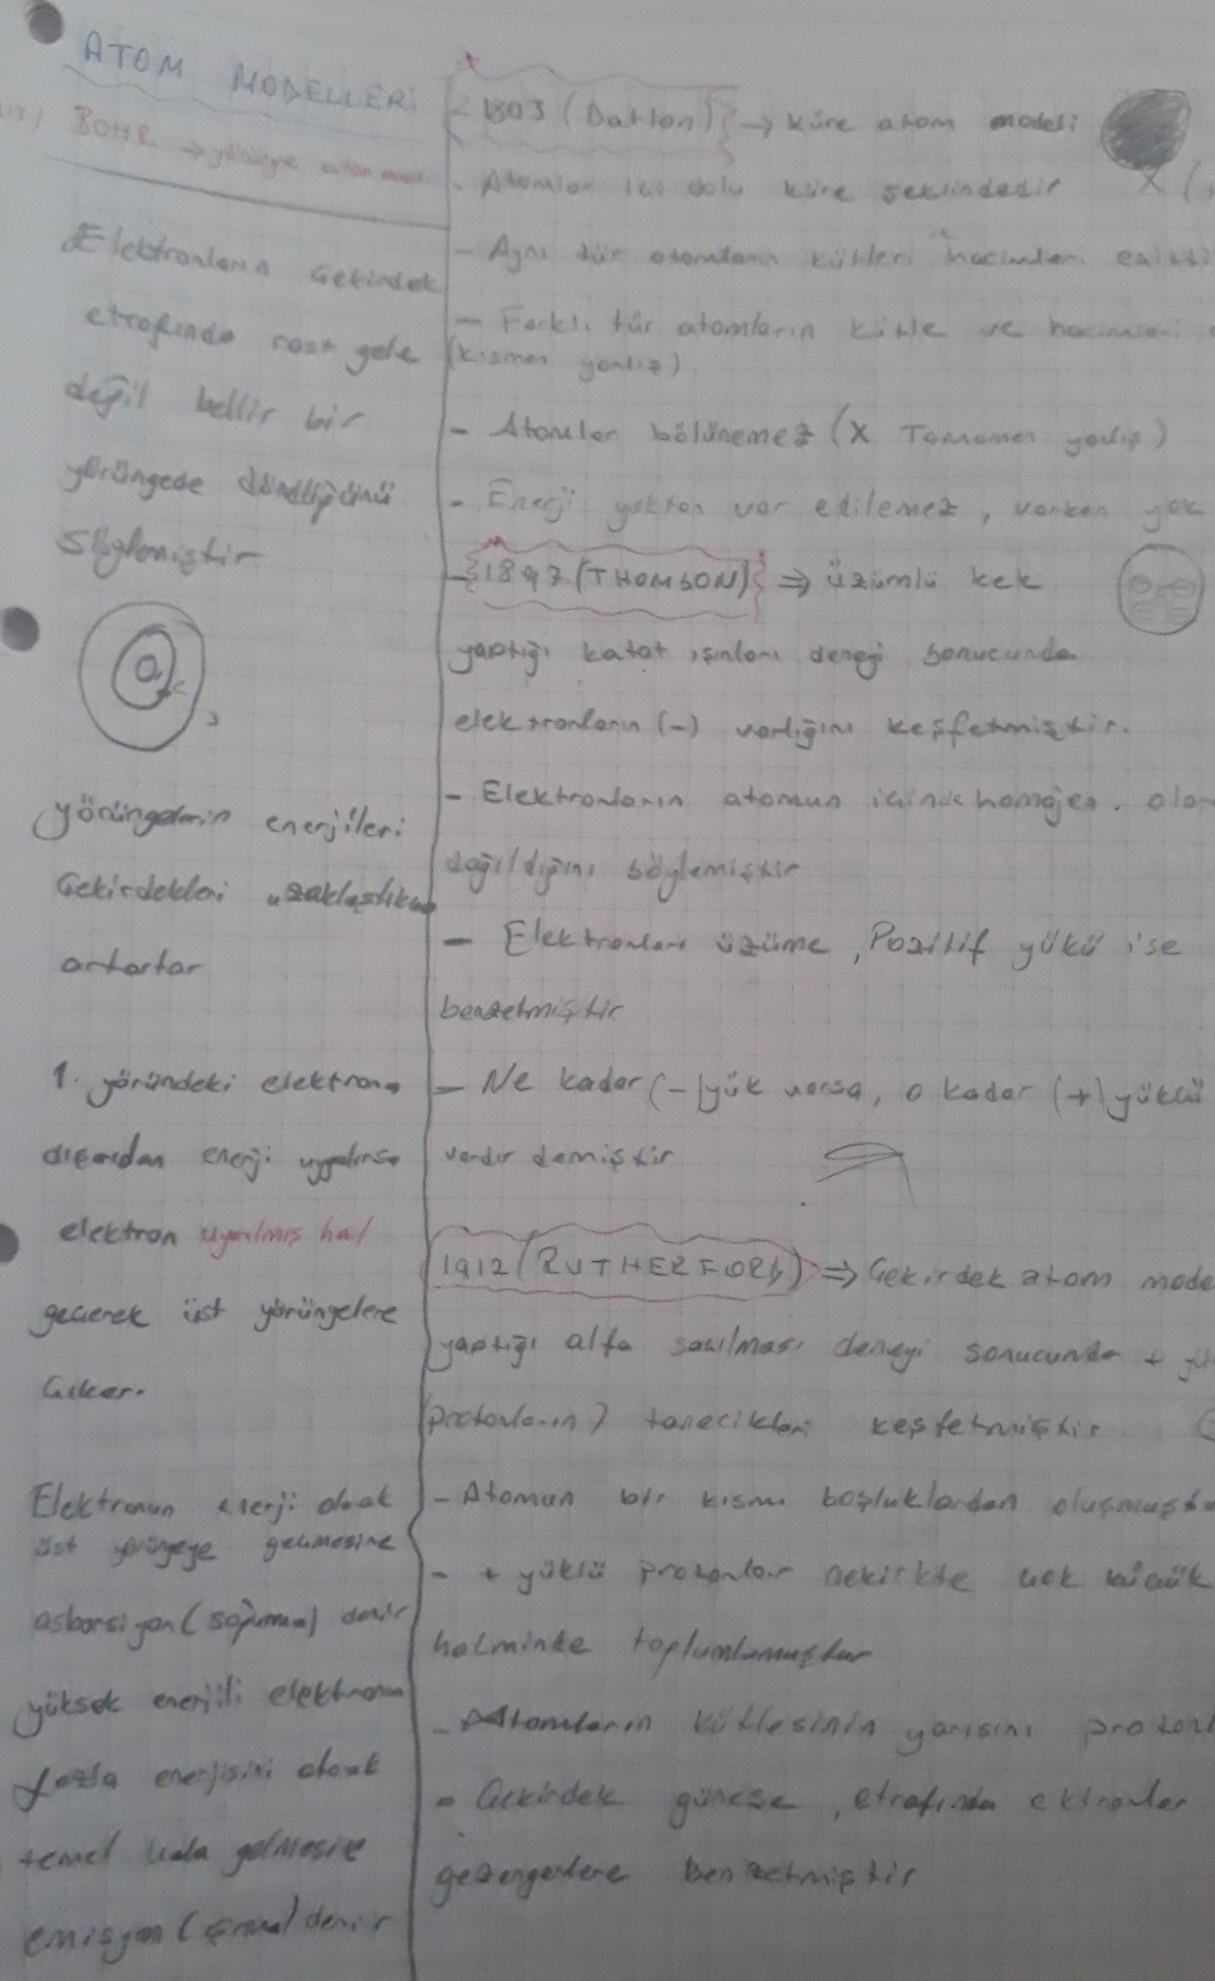 ATOM MODELLERİ
BOHR → yörünge atom
Elektronların Çekirdek
etrafında rast gele
değil bellir bir
yörüngede döndüğünü
Söylemiştir
yörüngelerin enerjileri
Çekirdekleri uzaklaştıkça
artartar
1. yöründeki elektrona
dışarıdan enerji uygulırsa
elektron uyarılmış hal
geçerek üst yörüngelere
Çıkar.
Elektronun enerji alarak
üst yörüngeye geçmesine
asborsiyon (soğurma) denir
yüksek enerjili elektronun
fazla enerjisini atarak
temel hala gelmesine
emisyon (ışıma) denir
1803 (Datlon) → küre atom modeli
- Atomlar içi dolu küre şeklindedir X (
- Aynı tür atomların kütleri ve hacimleri eşitti
- Farklı tür atomların kütle ve hacimleri
(kısmen yanlış)
- Atomlar bölünemez (X Tamamen yanlış)
- Enerji yoktan var edilemez, varken yok
- 1897 (THOMSON) ⇒ üzümlü kek
yaptığı katot ışınları deneyi sonucunda
elektronların (-) varlığını keşfetmiştir.
- Elektronların atomun içinde homojen. olar
dağıldığını söylemiştir
- Elektronları üzüme, Pozitif yükü ise
benzetmiştir
- Ne kadar (-) yük varsa, o kadar (+) yüklü
vardır demiştir
1912 (RUTHERFORD) ⇒ Çekirdek atom mode
yaptığı alfa saçılması deneyi sonucunda + yü
(protonların) tanecikleri keşfetmiştir
- Atomun bir kısmı boşluklardan oluşmuşt
- + yüklü protonlar çekirkte çok küçük
halminde toplumlumuştur
- Atomların kütlesinin yarısını proton
- Çekirdek güneşe, etrafında ektronlar
gezengenlere benzetmiştir